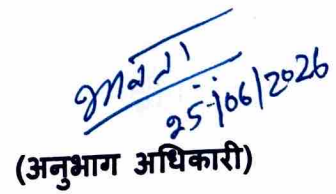 भावना
25/06/2026
(अनुभाग अधिकारी)